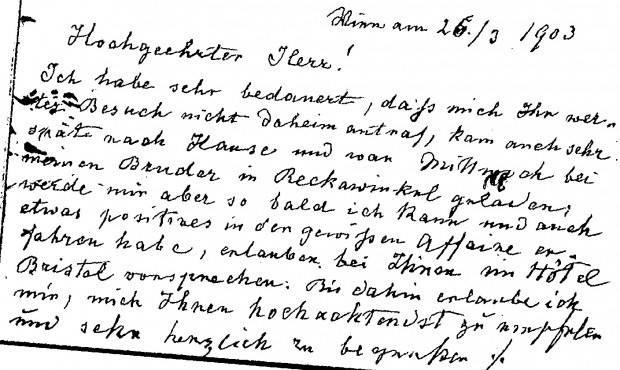 Wien am 26./3 1903
Hochgeehrter Herr!
Ich habe sehr bedauert, daß mich Ihr wer-
ter Besuch nicht daheim antraf, kam auch sehr
spät nach Hause und war Mittwoch bei
meinen Bruder in Reckawinkel geladen;
werde mir aber so bald ich kann und auch
etwas positives in den gewißen Affaire er
fahren habe, erlauben bei Ihnen im Hôtel
Bristol vorsprechen. Bis dahin erlaube ich
mir, mich Ihnen hochachtendst zu empfelen
und sehr herzlich zu begrüßen